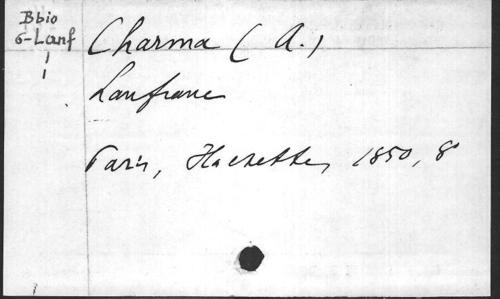 Bbio
6-Lanf
1
1
Charma (A.)
Lanfranc
Paris, Hachette, 1850, 8°